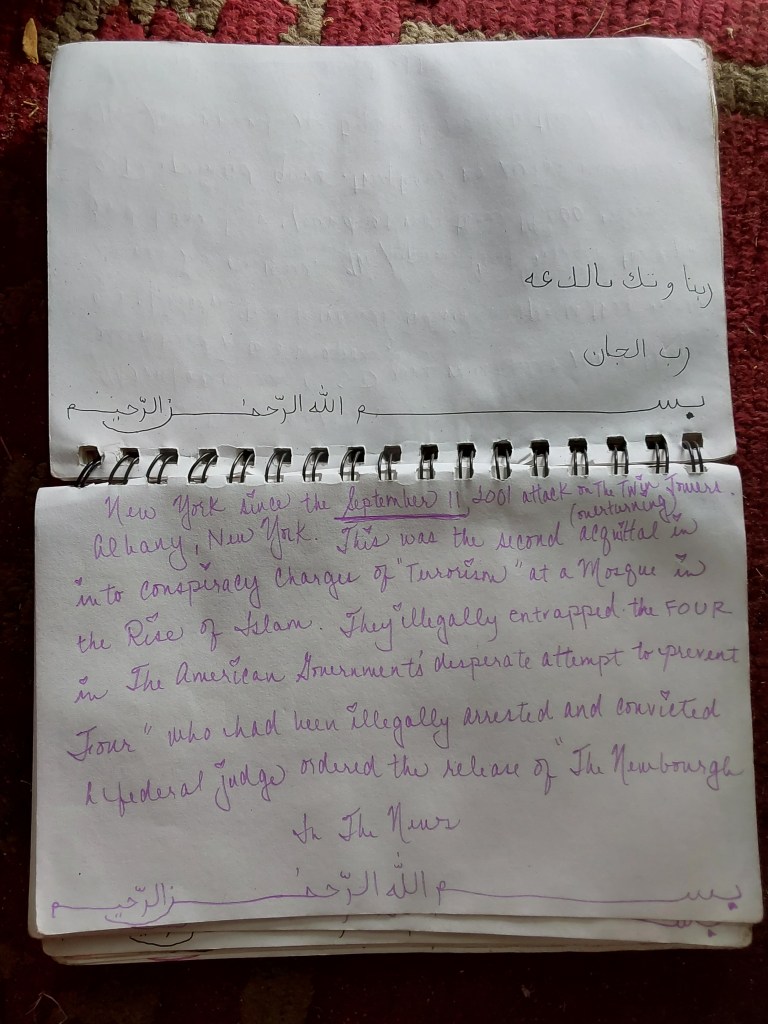 بسم الله الرّحمٰن الرّحيم
رب الجان
ربنا وتك
بسم الله الرّحمٰن الرّحيم
In The News
A federal judge ordered the release of "The Newbourgh
Four" who had been illegally arrested and convicted
in The American Government's desperate attempt to prevent
the Rise of Islam. They illegally entrapped the FOUR
into conspiracy charges of "Terrorism" at a Mosque in
Albany, New York. This was the second (overturning) acquittal in
New York since the September 11, 2001 attack on The Twin Towers.